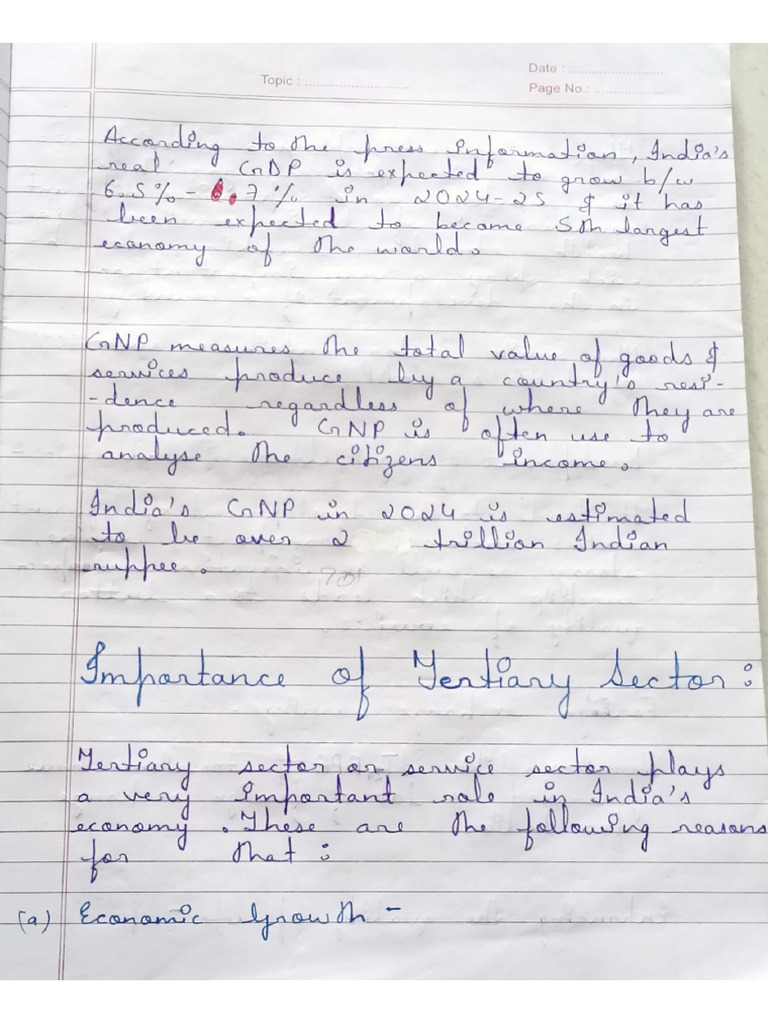 Date : ........................
Topic : ...........................
Page No.: ..................
According to the press information, India's
real GDP is expected to grow b/w
6.5% - 6.7% in 2024-25 & it has
been expected to become 5th largest
economy of the world.
GNP measures the total value of goods &
services produce by a country's resi-
-dence regardless of where they are
produced. GNP is often use to
analyse the citizens income.
India's GNP in 2024 is estimated
to be over 2 trillion Indian
ruppee.
Importance of Tertiary Sector:
Tertiary sector or service sector plays
a very important role in India's
economy. These are the following reasons
for that:
(a) Economic Growth -